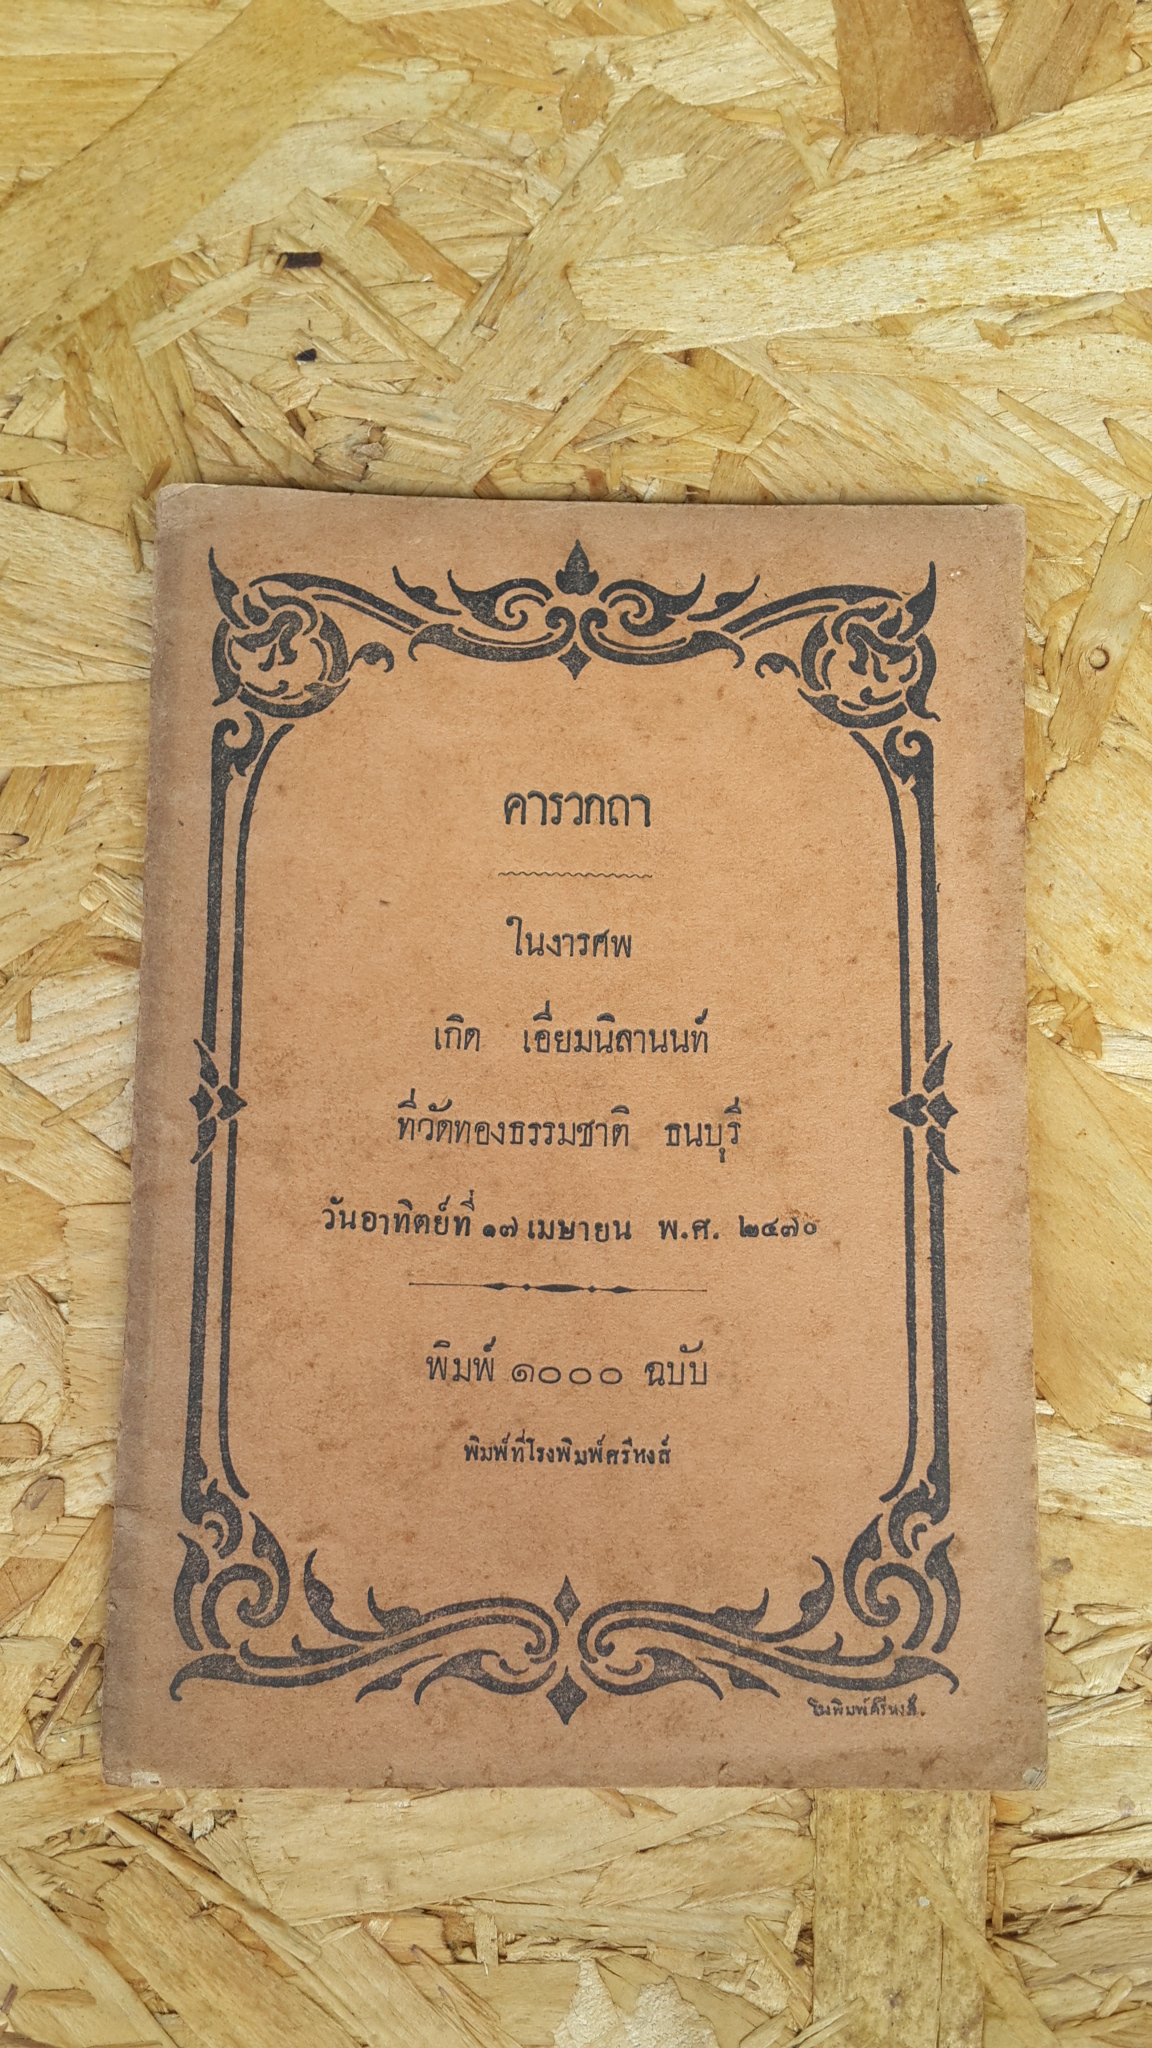 คารวกถา
ในงารศพ
เกิด เอี่ยมนิลานนท์
ที่วัดทองธรรมชาติ ธนบุรี
วันอาทิตย์ที่ ๑๗ เมษายน พ.ศ. ๒๔๗๐
พิมพ์ ๑๐๐๐ ฉบับ
พิมพ์ที่โรงพิมพ์ศรีหงส์